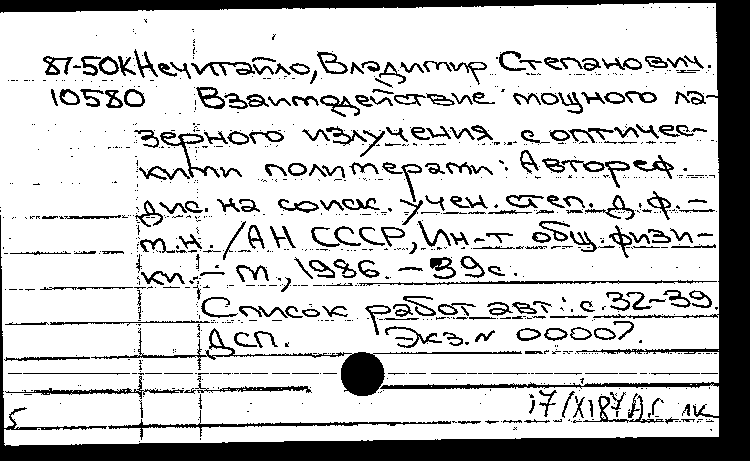 87-50К Нечитайло, Владимир Степанович.
10580 Взаимодействие мощного ла-
зерного излучения с оптичес-
кими полимерами: Автореф.
дис. на соиск. учен. степ. д.ф.-
м.н. /АН СССР, Ин-т общ. физи-
ки. - М., 1986. - 39с.
Список работ авт.: с. 32-39.
ДСП. Экз. N 00007.
17/XI87 А.С лк
5